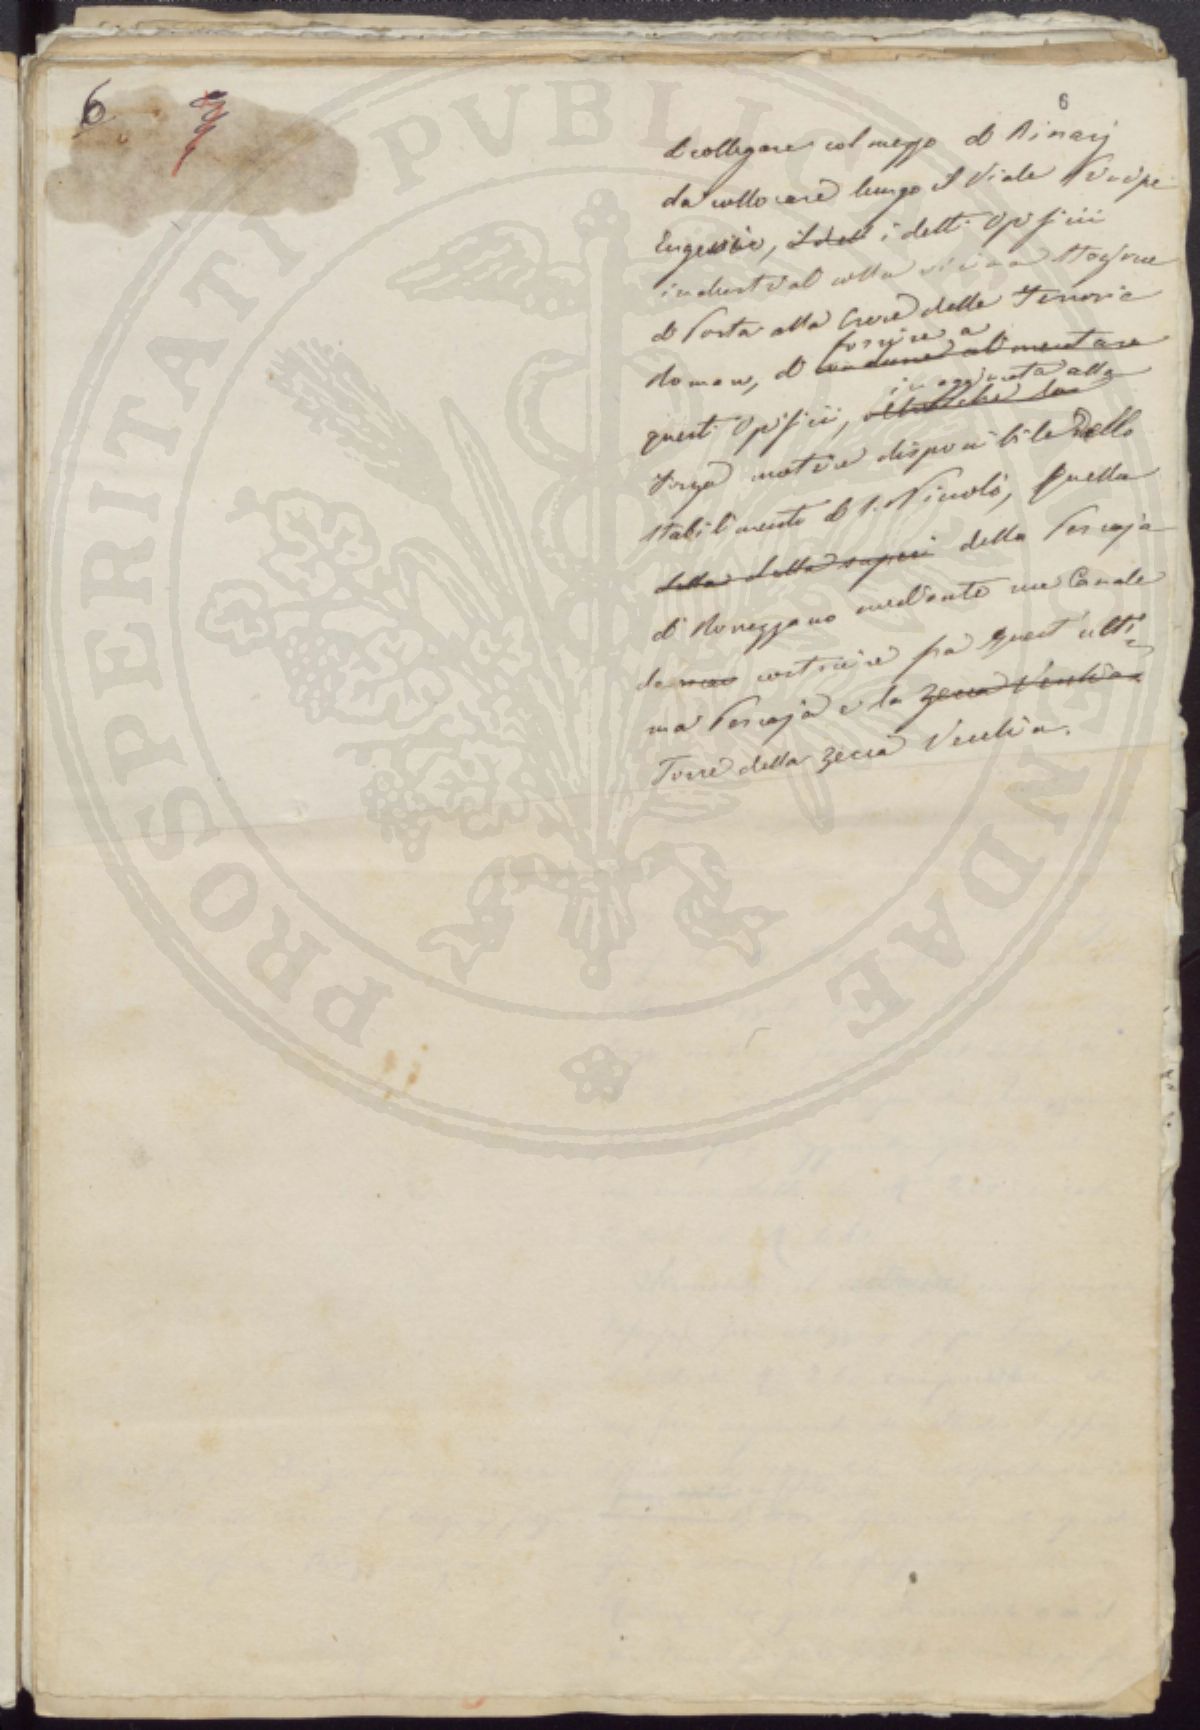 6
6
di collegare col mezzo di Binarj
da collocare lungo il Viale Principe
Eugenio, i detti Opificii
industriali colla vicina Stazione
di Porta alla Croce delle Ferrovie
Romane, di fornire a
questi Opificii, in aggiunta alla
forza motrice disponibile dello
Stabilimento di S. Niccolò, quella
della Pescaja
di Rovezzano mediante un Canale
da costruire fra quest'ulti
ma Pescaja e la Zecca Vecchia
Torre della Zecca Vecchia.
PROSPERITATI PVBLICAE